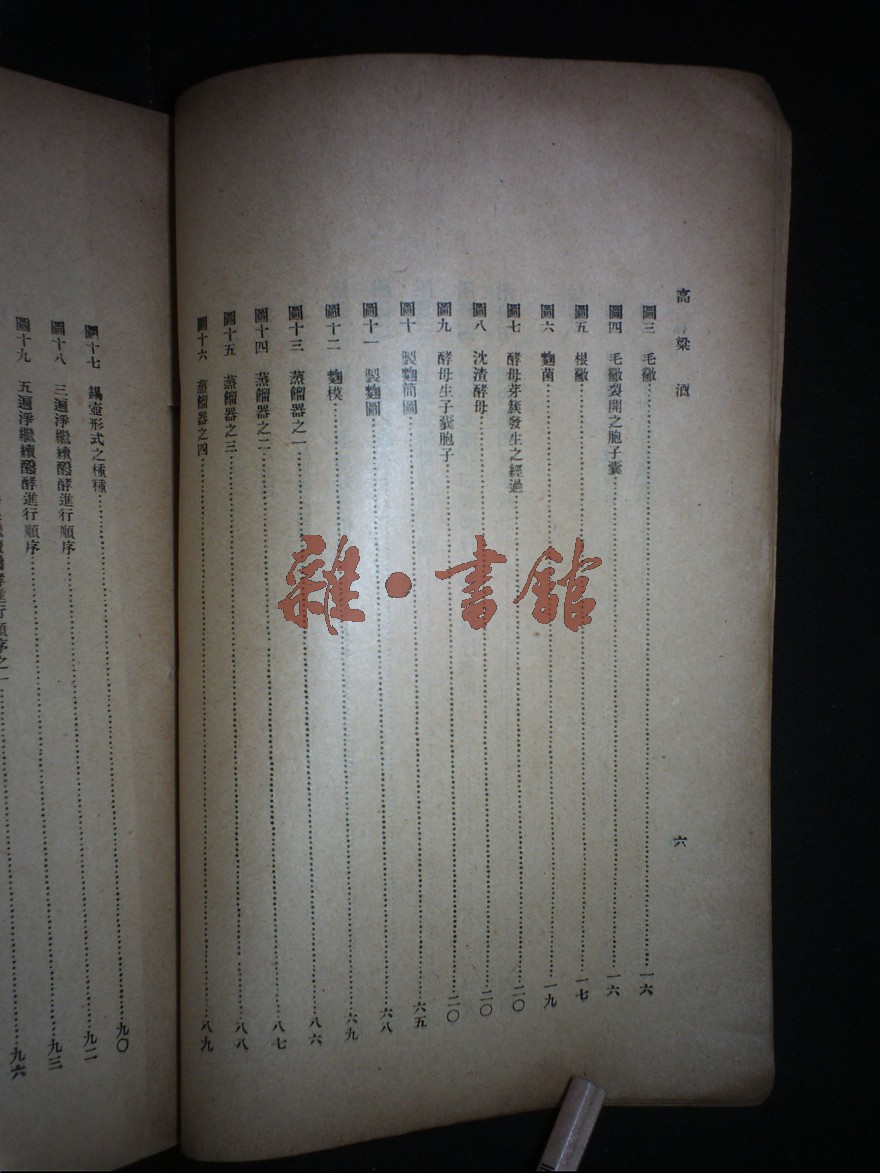 高粱酒 六
圖三 毛黴 一六
圖四 毛黴裂開之胞子囊 一六
圖五 根黴 一七
圖六 麴菌 一九
圖七 酵母芽簇發生之經過 二〇
圖八 沈渣酵母 二〇
圖九 酵母生子囊胞子 二〇
圖十 製麴簡圖 六五
圖十一 製麴圖 六八
圖十二 麴模 六九
圖十三 蒸餾器之一 八六
圖十四 蒸餾器之二 八七
圖十五 蒸餾器之三 八八
圖十六 蒸餾器之四 八九
圖十七 錫壺形式之種種 九〇
圖十八 三遍淨繼續醱酵進行順序 九二
圖十九 五遍淨繼續醱酵進行順序 九三
繼續醱酵進行順序之一 九六
雜·書館